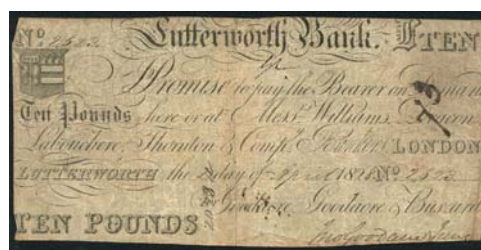 No. 2522 Lutterworth Bank. £TEN
Promise to pay the Bearer on
Ten Pounds here or at Messrs. Williams,
Labouchere, Thornton & Compy. LONDON
LUTTERWORTH the day of April No. 2522
Goodacre & Buszard
TEN POUNDS